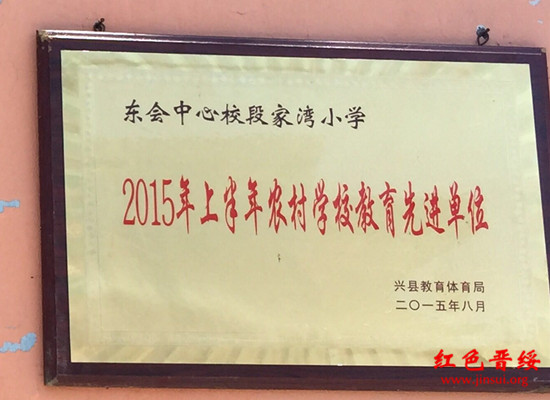 东会中心校段家湾小学
2015年上半年农村学校教育先进单位
兴县教育体育局
二〇一五年八月
红色晋绥
www.jinsui.org